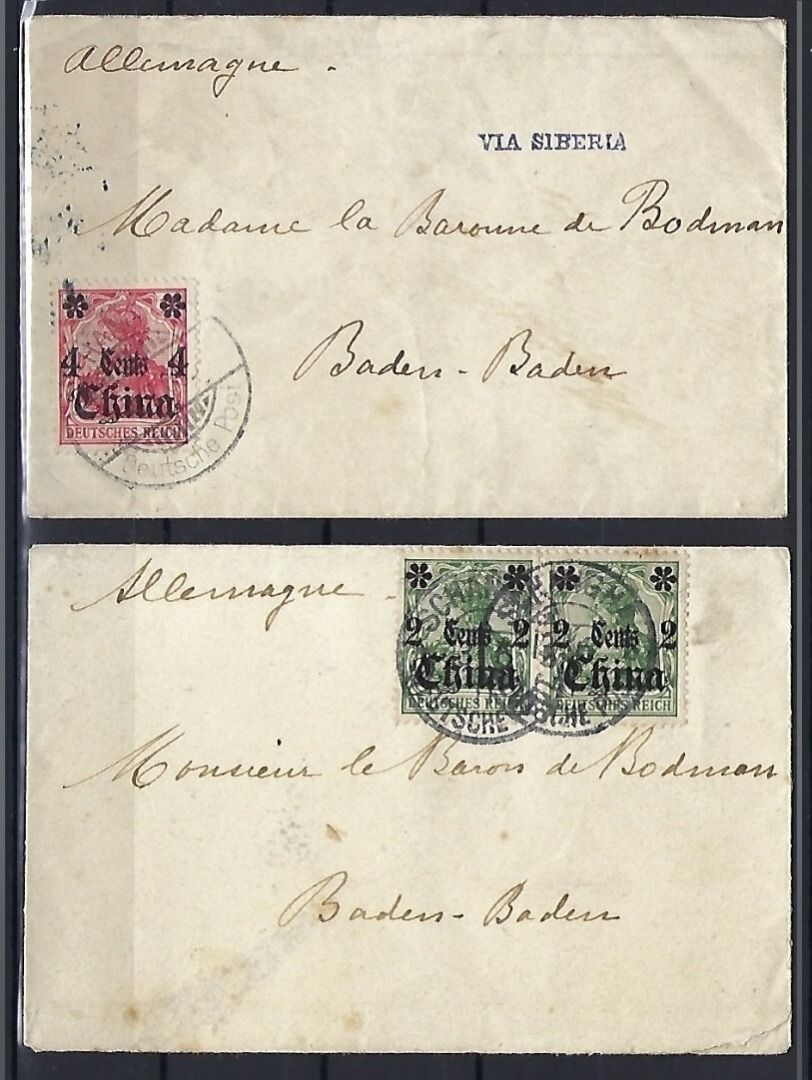 Allemagne.
VIA SIBERIA
Madame la Baronne de Bodman
Baden-Baden
4 Cents 4
China
DEUTSCHES REICH
Deutsche Post
Allemagne.
2 Cents 2
China
DEUTSCHES REICH
2 Cents 2
China
DEUTSCHES REICH
Monsieur le Baron de Bodman
Baden-Baden